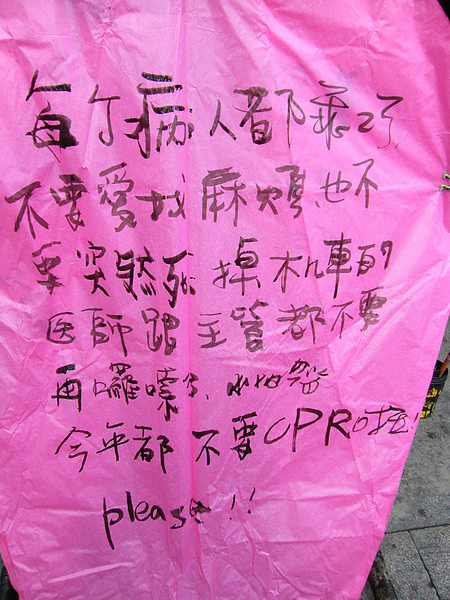 每个病人都乖2了
不要愛找麻煩,也不
要突然死掉机車的
医師跟主管都不要
再囉嗦了、
今年都不要CPR啦!
please!!